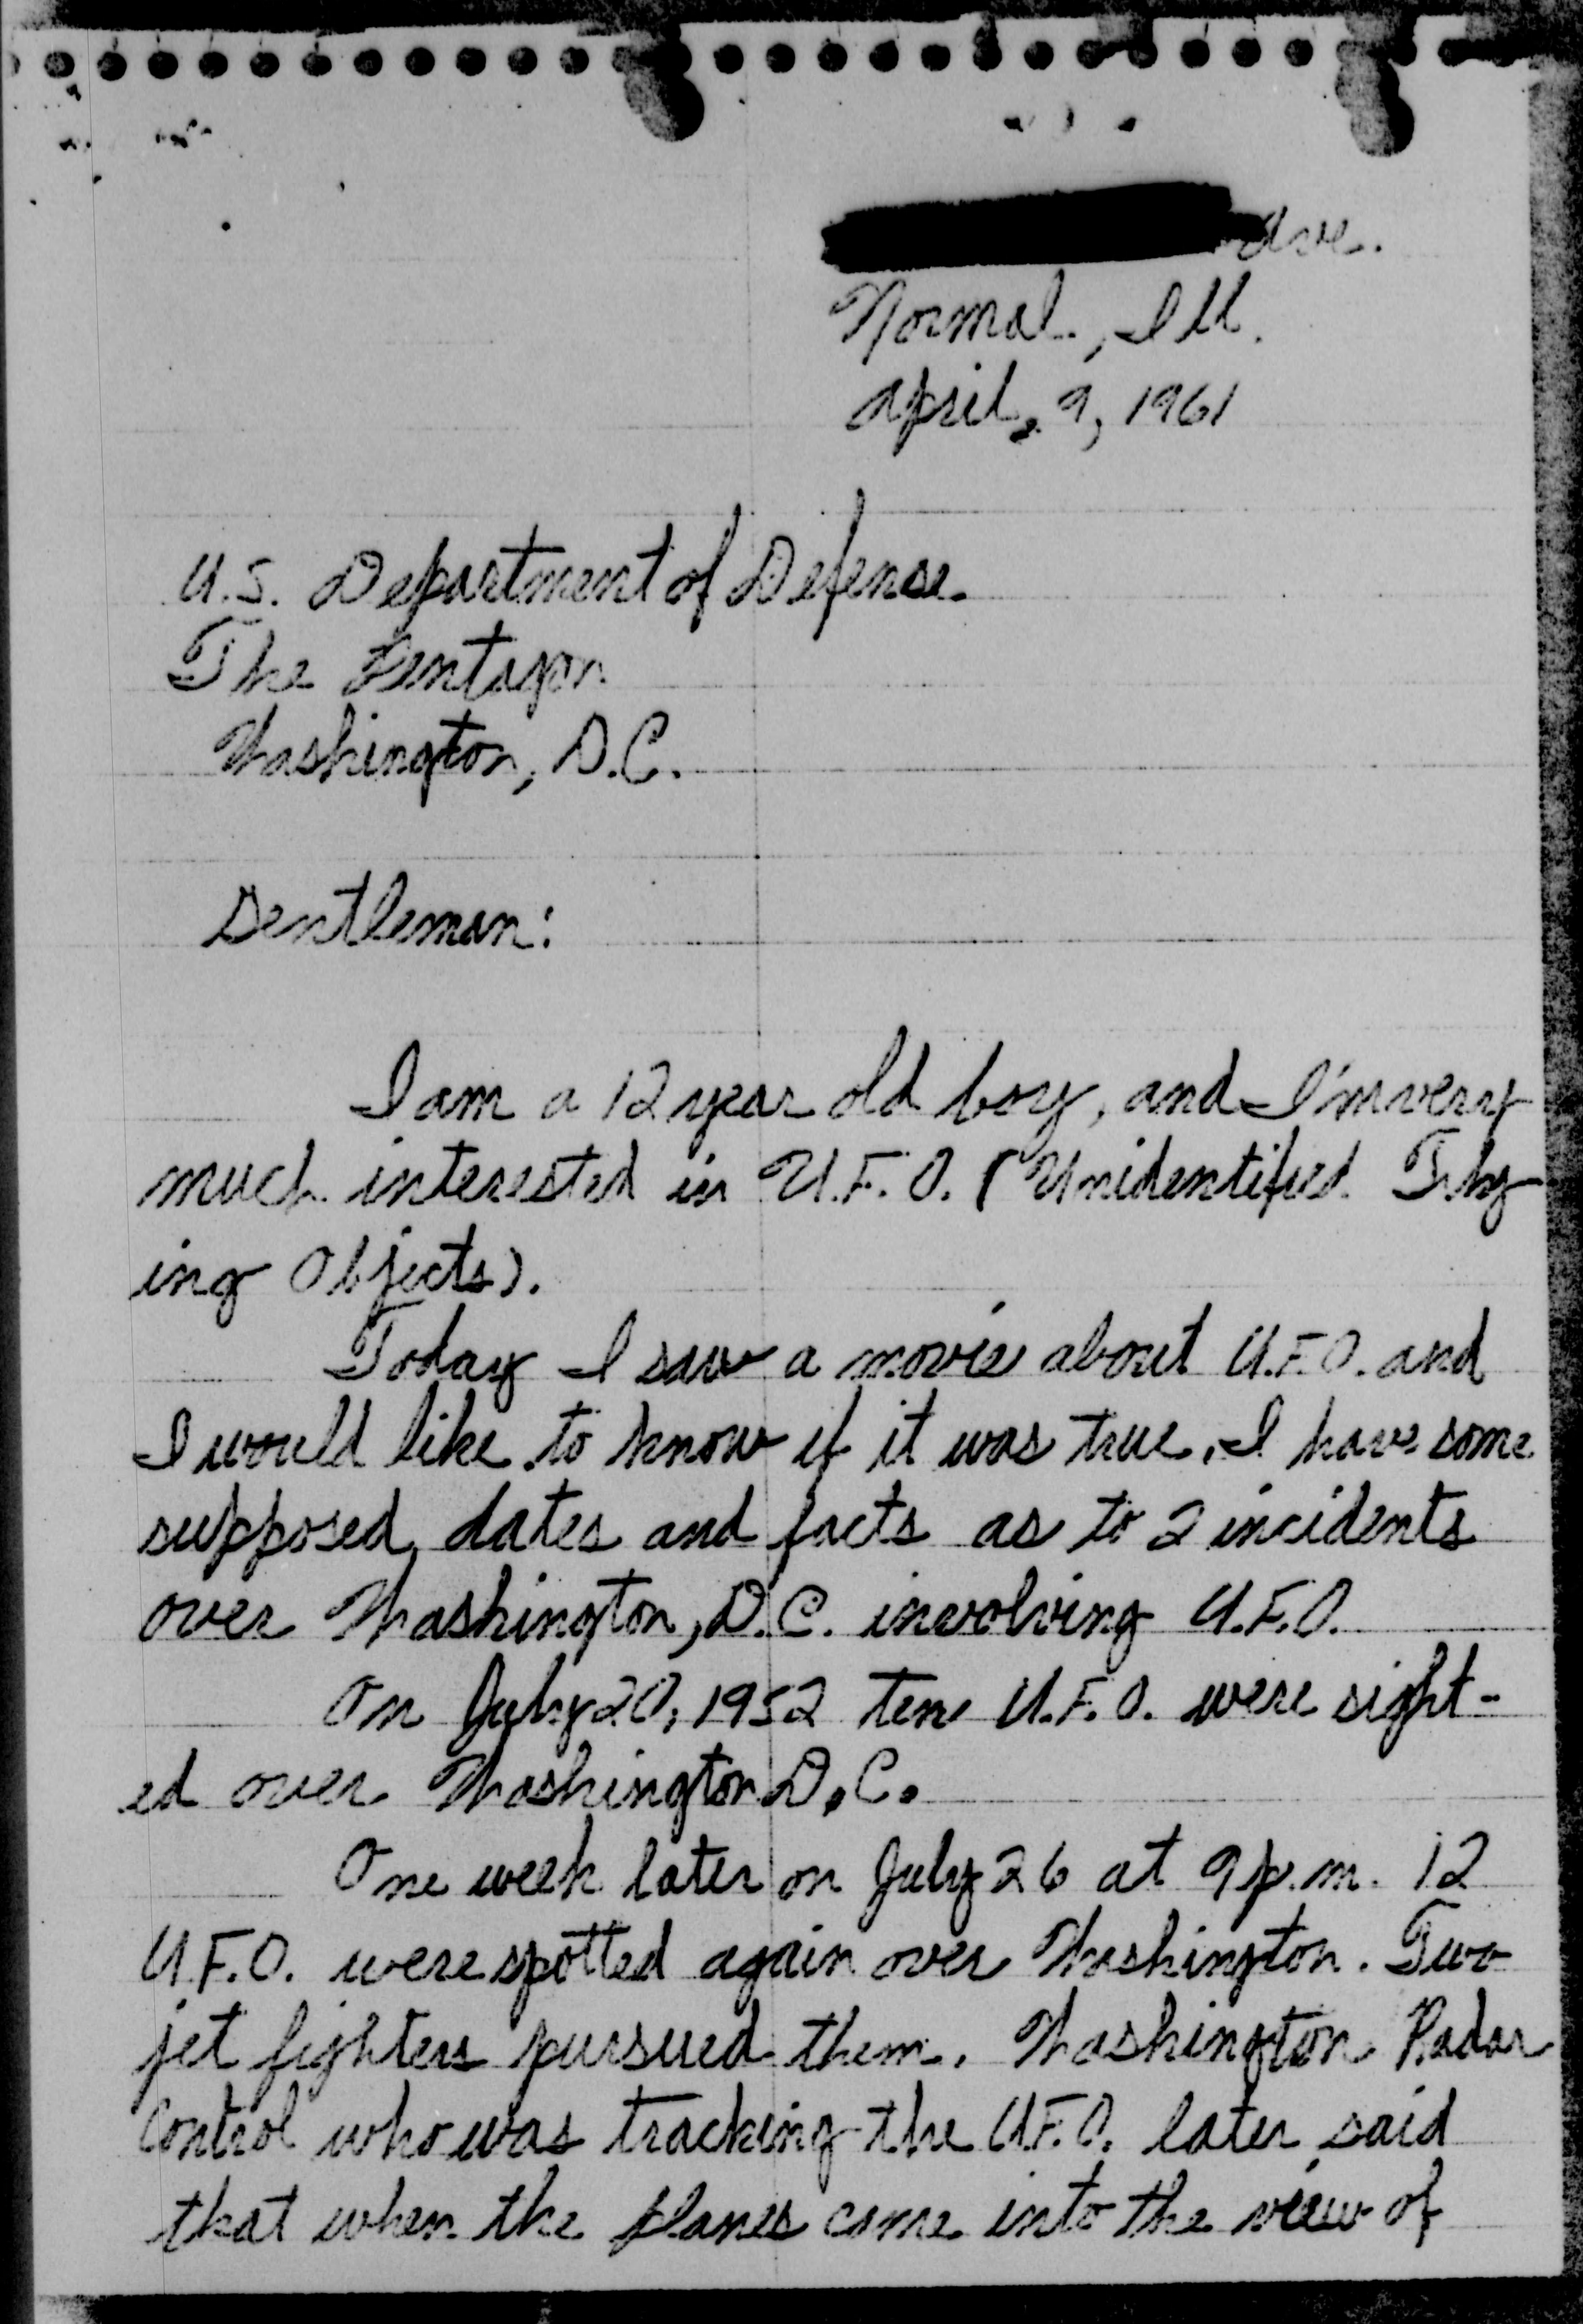 Ave.
Normal, Ill.
April, 9, 1961
U.S. Department of Defense
The Pentagon
Washington, D.C.
Gentleman:
I am a 12 year old boy, and I'm very
much interested in U.F.O. (Unidentified Fly-
ing Objects).
Today I saw a movie about U.F.O. and
I would like to know if it was true. I have some
supposed dates and facts as to 2 incidents
over Washington, D.C. involving U.F.O.
On July 20, 1952 ten U.F.O. were sight-
ed over Washington D.C.
One week later on July 26 at 9 p.m. 12
U.F.O. were spotted again over Washington. Two
jet fighters pursued them. Washington Radar
Control who was tracking the U.F.O. later said
that when the planes came into the view of